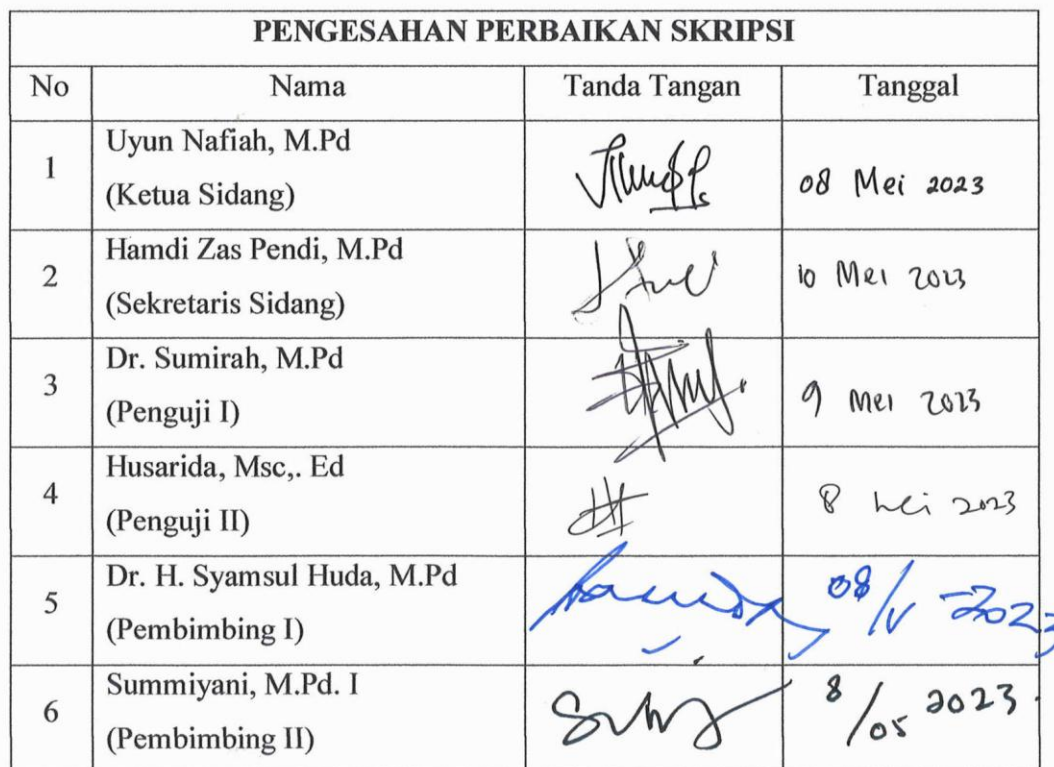 PENGESAHAN PERBAIKAN SKRIPSI
No Nama Tanda Tangan Tanggal
1 Uyun Nafiah, M.Pd
(Ketua Sidang) 08 Mei 2023
2 Hamdi Zas Pendi, M.Pd
(Sekretaris Sidang) 10 Mei 2023
3 Dr. Sumirah, M.Pd
(Penguji I) 9 Mei 2023
4 Husarida, Msc,. Ed
(Penguji II) 8 Mei 2023
5 Dr. H. Syamsul Huda, M.Pd
(Pembimbing I) 08/V-2023
6 Summiyani, M.Pd. I
(Pembimbing II) 8/05 2023.